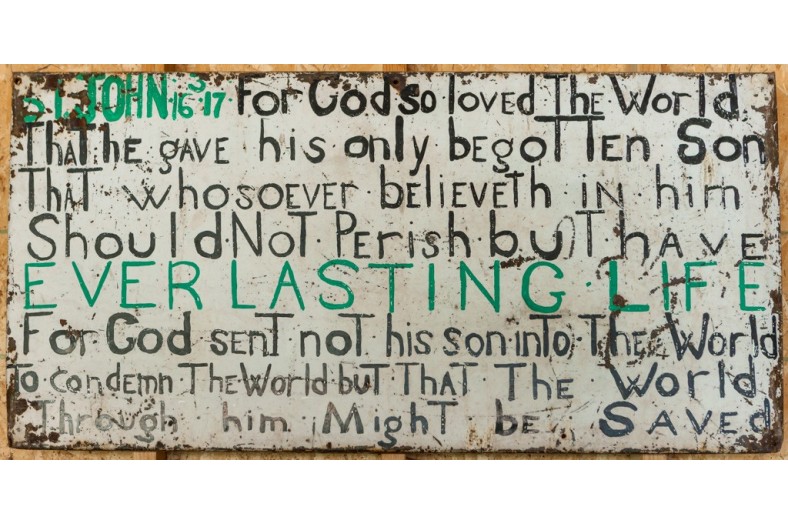 ST. JOHN·16·3·17· For God so loved The World
ThaT. he gave his only begoTTen Son
ThaT whosoever believeth in him
Should·NoT·Perish·buT have
EVERLASTING·LIFE
For God senT noT his son into The World
To condemn The World·buT ThaT The World
Through him MighT be Saved